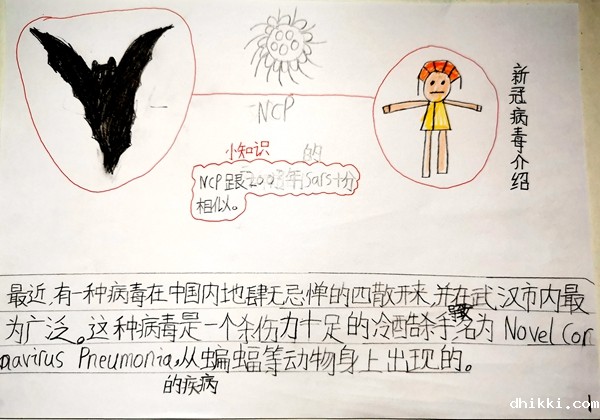 新冠病毒介绍
NCP
小知识 的
NCP跟2003年sars十分
相似。
最近,有一种病毒在中国内地肆无忌惮的四散开来,并在武汉市内最
为广泛。这种病毒是一个杀伤力十足的冷酷杀手,名为 Novel Cor
navirus Pneumonia,从蝙蝠等动物身上出现的。
的疾病
dhikki.com